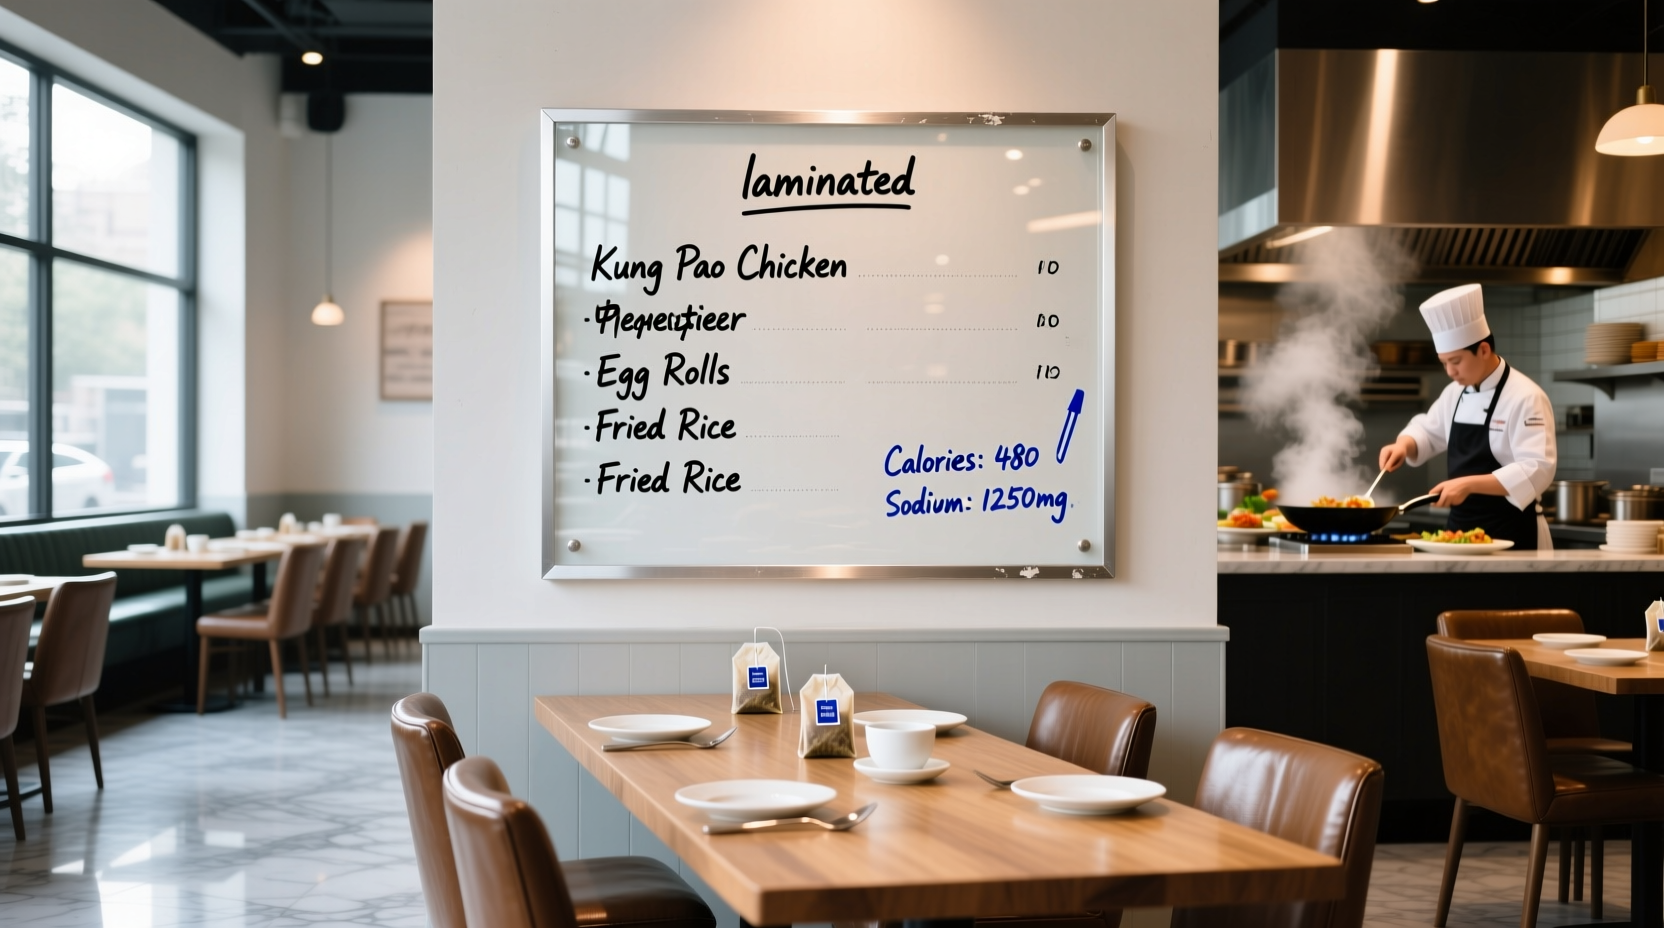 laminated
Kung Pao Chicken 10
Egg Rolls
Fried Rice
Fried Rice
Calories: 480
Sodium: 1250mg.